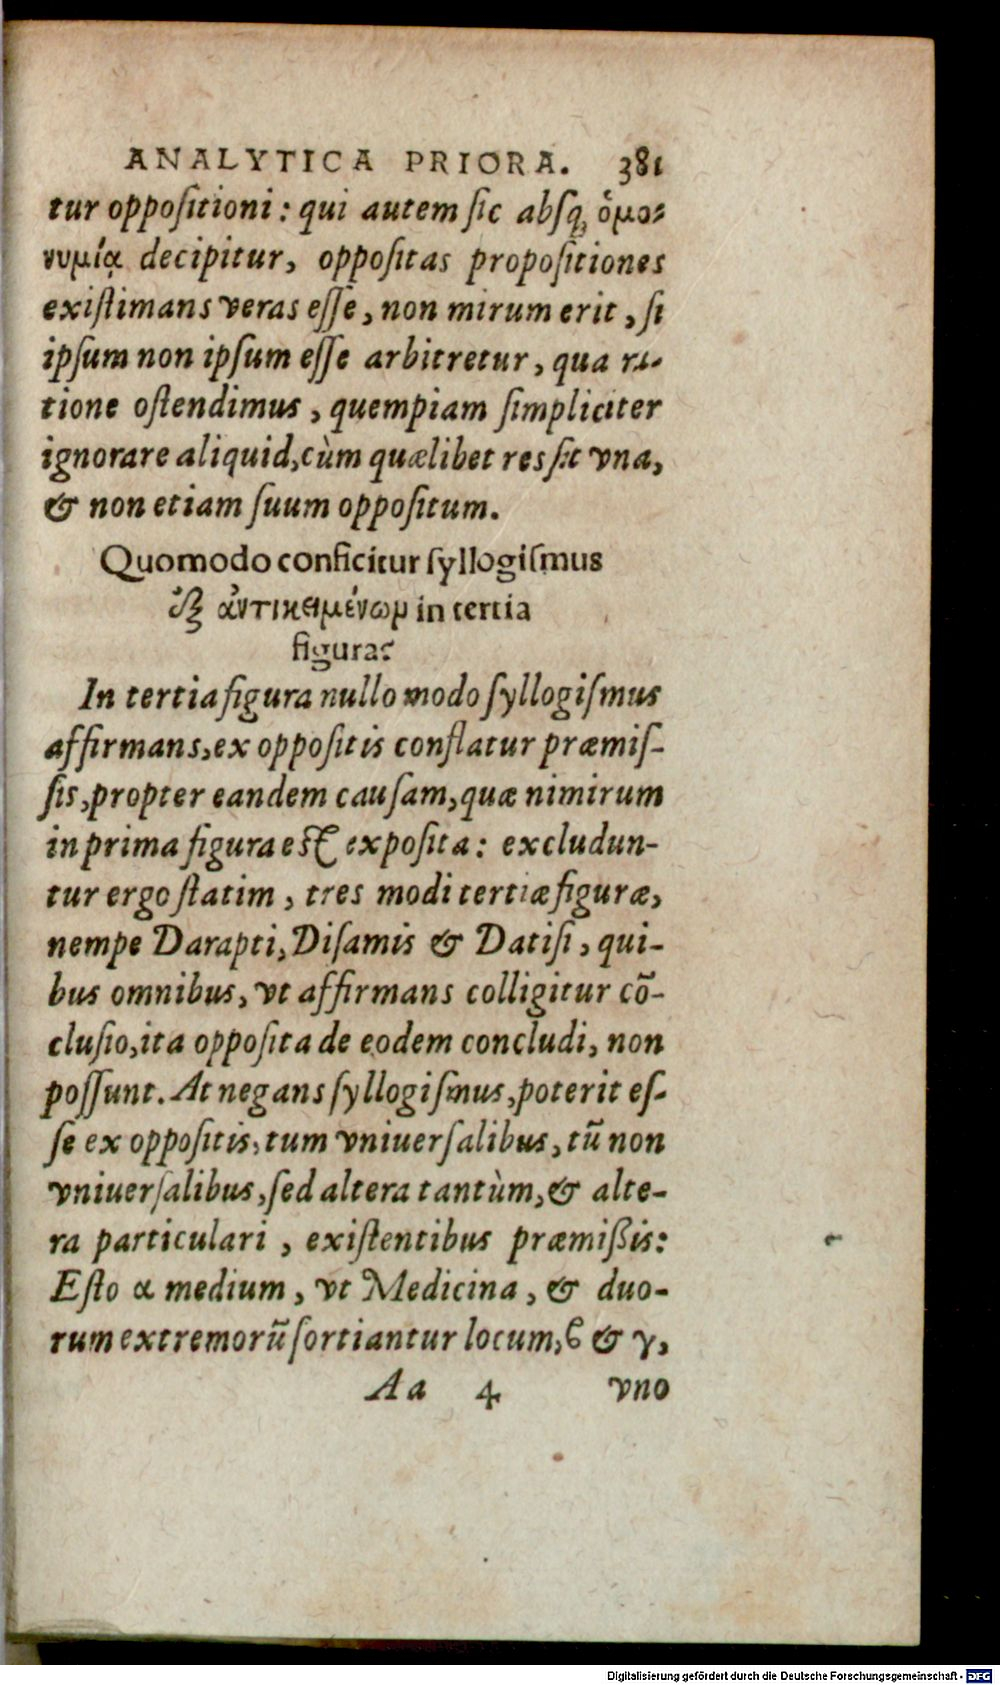 ANALYTICA PRIORA. 381
tur oppoſitioni: qui autem ſic abſq; ὁμο-
νυμίᾳ decipitur, oppoſitas propoſitiones
exiſtimans veras eſſe, non mirum erit, ſi
ipſum non ipſum eſſe arbitretur, qua ra-
tione oſtendimus, quempiam ſimpliciter
ignorare aliquid, cùm quælibet res ſit vna,
& non etiam ſuum oppoſitum.
Quomodo conficitur ſyllogiſmus
ἐξ ἀντικειμένων in tertia
figura?
In tertia figura nullo modo ſyllogiſmus
affirmans, ex oppoſitis conflatur præmiſ-
ſis, propter eandem cauſam, quæ nimirum
in prima figura eſt expoſita: excludun-
tur ergo ſtatim, tres modi tertiæ figuræ,
nempe Darapti, Diſamis & Datiſi, qui-
bus omnibus, vt affirmans colligitur cō-
cluſio, ita oppoſita de eodem concludi, non
poſſunt. At negans ſyllogiſmus, poterit eſ-
ſe ex oppoſitis, tum vniuerſalibus, tū non
vniuerſalibus, ſed altera tantùm, & alte-
ra particulari, exiſtentibus præmißis:
Eſto α medium, vt Medicina, & duo-
rum extremorū ſortiantur locum, ϐ & γ,
Aa 4 vno
Digitalisierung gefördert durch die Deutsche Forschungsgemeinschaft - DFG